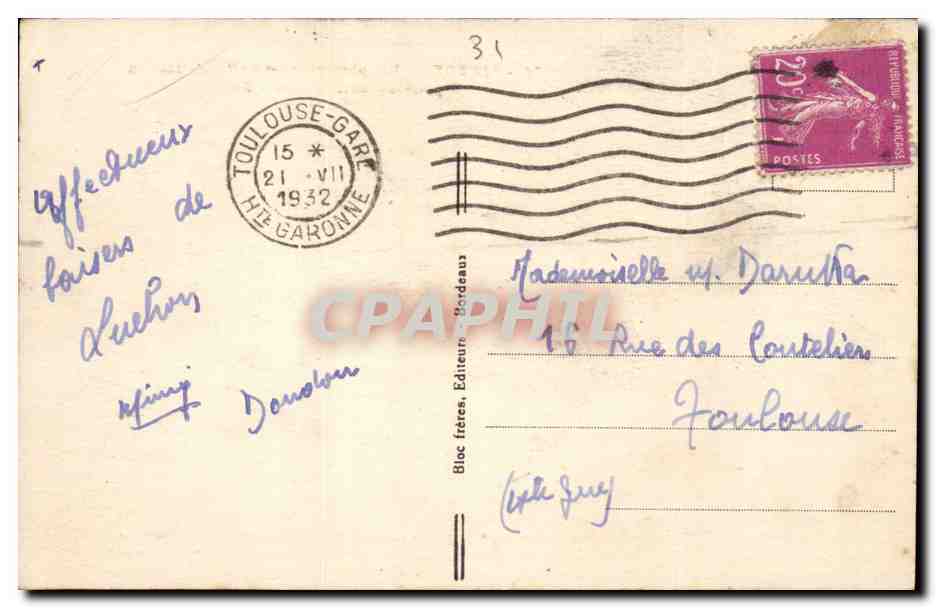 31
TOULOUSE-GARE
15 *
21 VII
1932
Hte GARONNE
20c
REPUBLIQUE FRANCAISE
POSTES
Affectueux
baisers de
Luchon
Mimi Doudou
Bloc frères, Editeurs, Bordeaux
CPAPHIL
Mademoiselle
16 Rue des Couteliers
Toulouse
(Hte Gne)